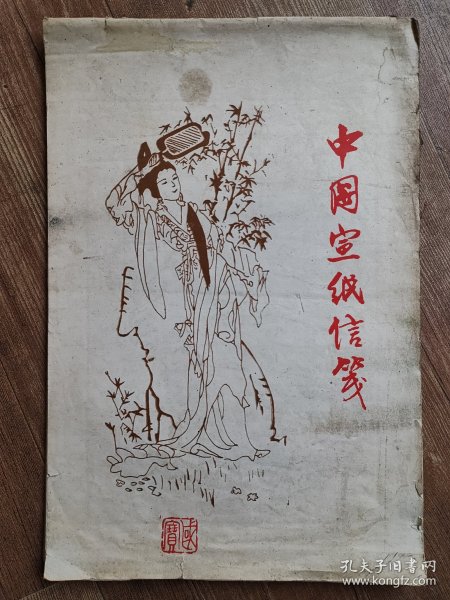 中国宣纸信笺
國寶
孔夫子旧书网
www.kongfz.com